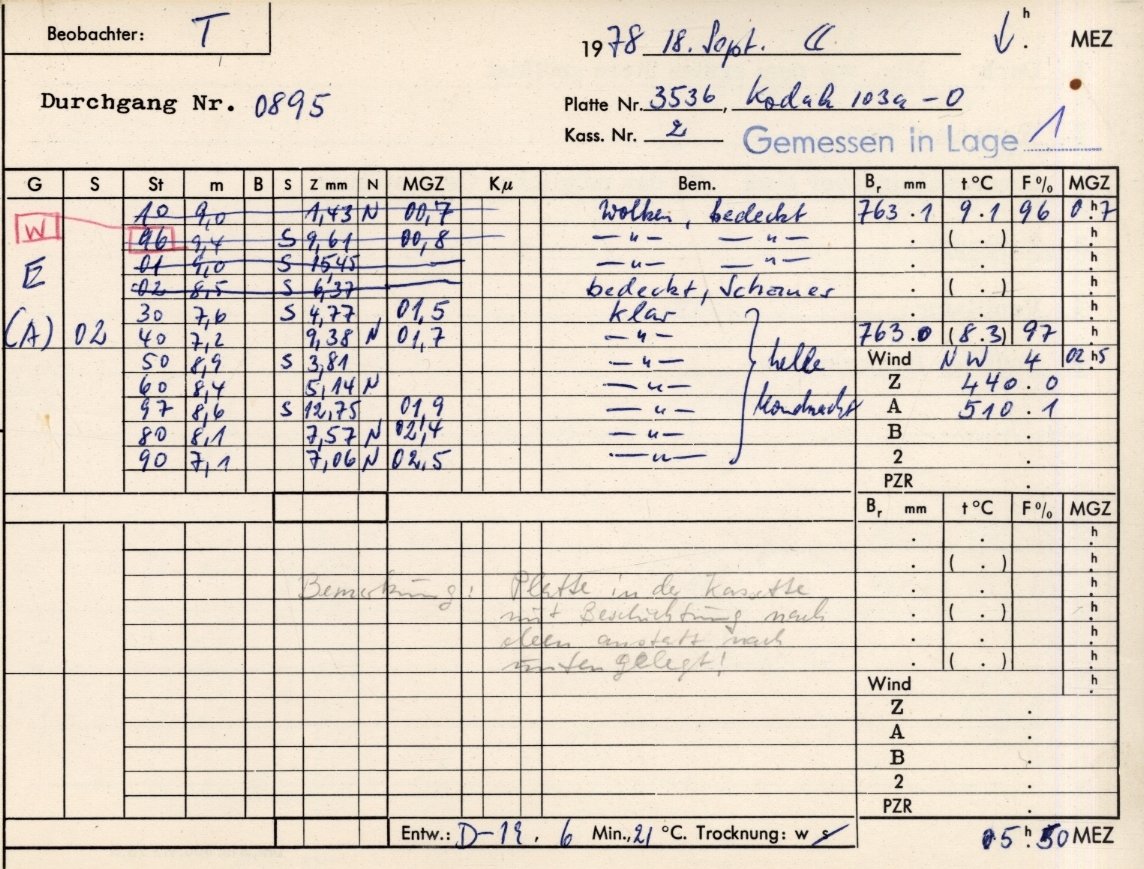 Beobachter: T
1978 18. Sept. ☾ h . MEZ
Durchgang Nr. 0895
Platte Nr. 3536, Kodak 103a-O
Kass. Nr. 2 Gemessen in Lage 1
G S St m B S Z mm N MGZ Kμ Bem. Br mm t °C F % MGZ
10 9,0 1,43 N 00,7 Wolken, bedeckt 763.1 9.1 96 0h.7
W 96 9,4 S 9,61 00,8 —"— —"— . ( . ) h.
01 9,0 S 15,45 —"— —"— . . h.
E 02 8,5 S 6,37 bedeckt, Schauer . ( . ) h.
30 7,6 S 4,77 01,5 klar . . h.
(A) 02 40 7,2 9,38 N 01,7 —"— 763.0 (8.3) 97 h
50 8,9 S 3,81 —"— helle Wind NW 4 02h5
60 8,4 5,14 N —"— Z 440.0
97 8,6 S 12,75 01,9 —"— Mondnacht A 510.1
80 8,1 7,57 N 02,4 —"— B .
90 7,1 7,06 N 02,5 —"— 2 .
PZR .
Br mm t °C F % MGZ
. . h.
. ( . ) h.
Bemerkung: Platte in der Kasette . . h.
mit Beschichtung nach . ( . ) h.
oben anstatt nach . . h.
unten gelegt! . ( . ) h.
Wind h.
Z .
A .
B .
2 .
PZR .
Entw.: D-19. 6 Min., 21 °C. Trocknung: w s 05h.50 MEZ